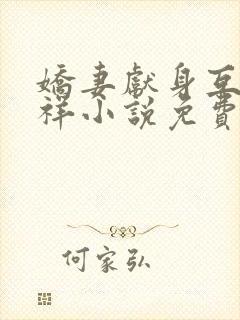 嬌妻獻身互
祥小說免費
何家弘